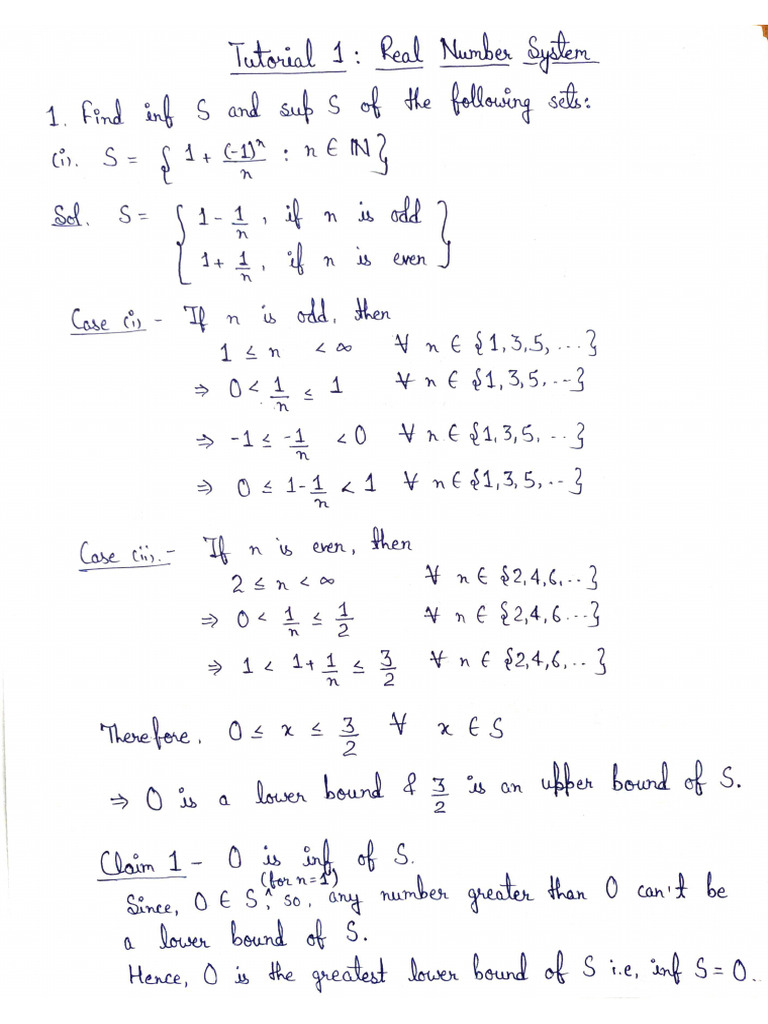 Tutorial 1: Real Number System
1. Find inf S and sup S of the following sets:
(i). S = { 1 + (-1)^n/n : n ∈ ℕ}
Sol. S = { 1 - 1/n, if n is odd
1 + 1/n, if n is even }
Case (i) - If n is odd, then
1 ≤ n < ∞ ∀ n ∈ {1,3,5, ...}
⇒ 0 < 1/n ≤ 1 ∀ n ∈ {1,3,5, ...}
⇒ -1 ≤ -1/n < 0 ∀ n ∈ {1,3,5, ...}
⇒ 0 ≤ 1 - 1/n < 1 ∀ n ∈ {1,3,5, ..}
Case (ii).- If n is even, then
2 ≤ n < ∞ ∀ n ∈ {2,4,6, ..}
⇒ 0 < 1/n ≤ 1/2 ∀ n ∈ {2,4,6 ...}
⇒ 1 < 1 + 1/n ≤ 3/2 ∀ n ∈ {2,4,6, ..}
Therefore, 0 ≤ x ≤ 3/2 ∀ x ∈ S
⇒ 0 is a lower bound & 3/2 is an upper bound of S.
Claim 1 - 0 is inf of S.
Since, 0 ∈ S (for n=1), so, any number greater than 0 can't be
a lower bound of S.
Hence, 0 is the greatest lower bound of S i.e, inf S = 0.